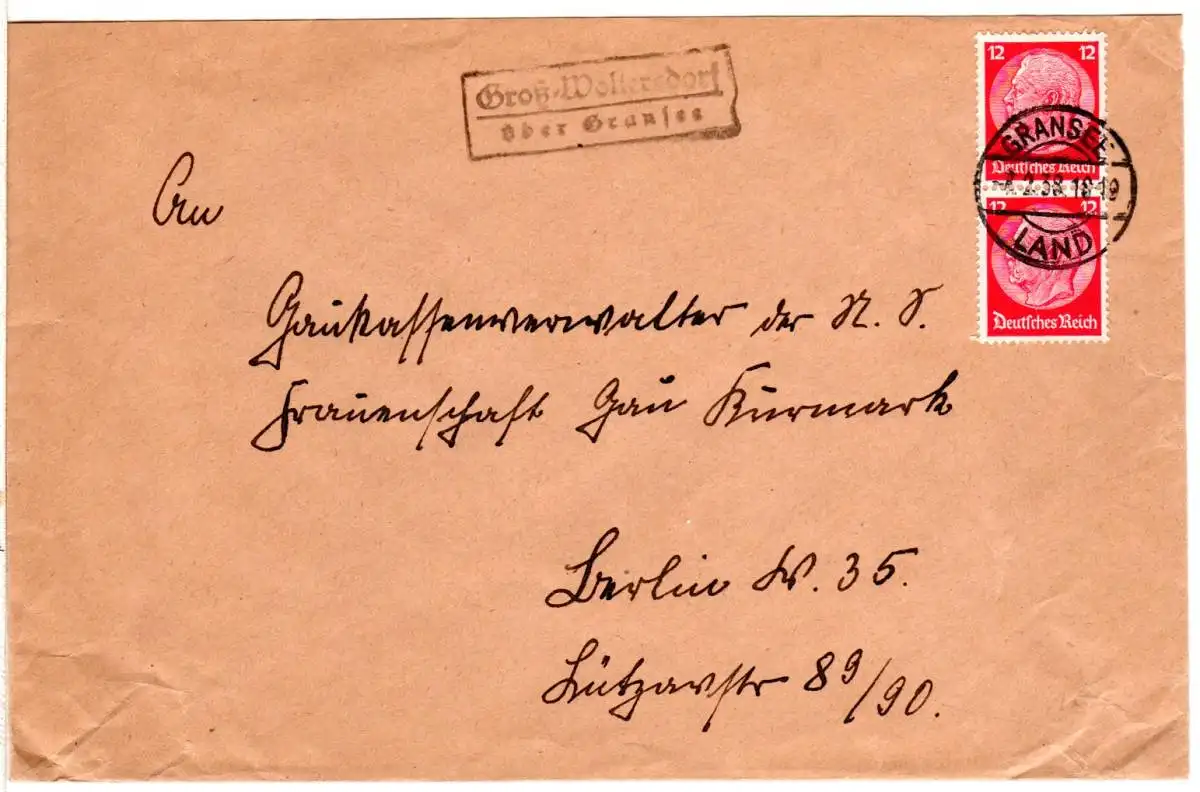 Groß-Woltersdorf
über Gransee
12 12
Deutsches Reich
GRANSEE
2.38.18-19
LAND
12 12
Deutsches Reich
An
Gaukassenverwalter der N. S.
Frauenschaft Gau Kurmark
Berlin W. 35.
Lützowstr 89/90.